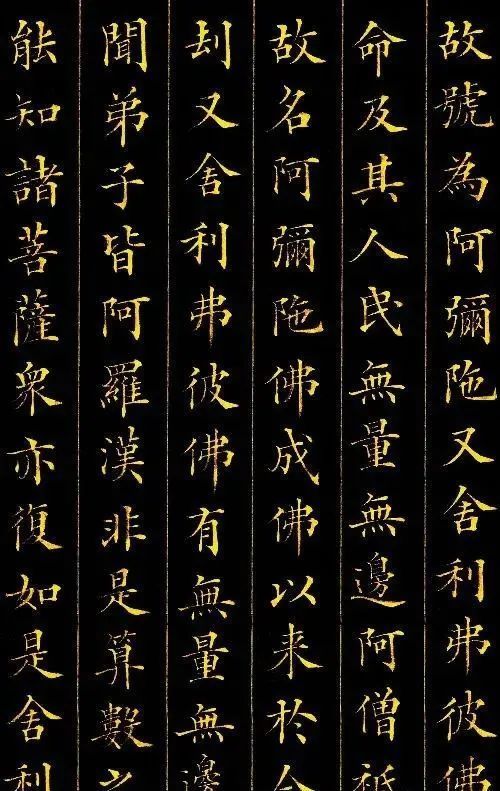 故號為阿彌陁又舍利弗彼佛
命及其人民無量無邊阿僧祇
故名阿彌陁佛成佛以来於今
刦又舍利弗彼佛有無量無邊
聞弟子皆阿羅漢非是算數之
能知諸菩薩衆亦復如是舍利